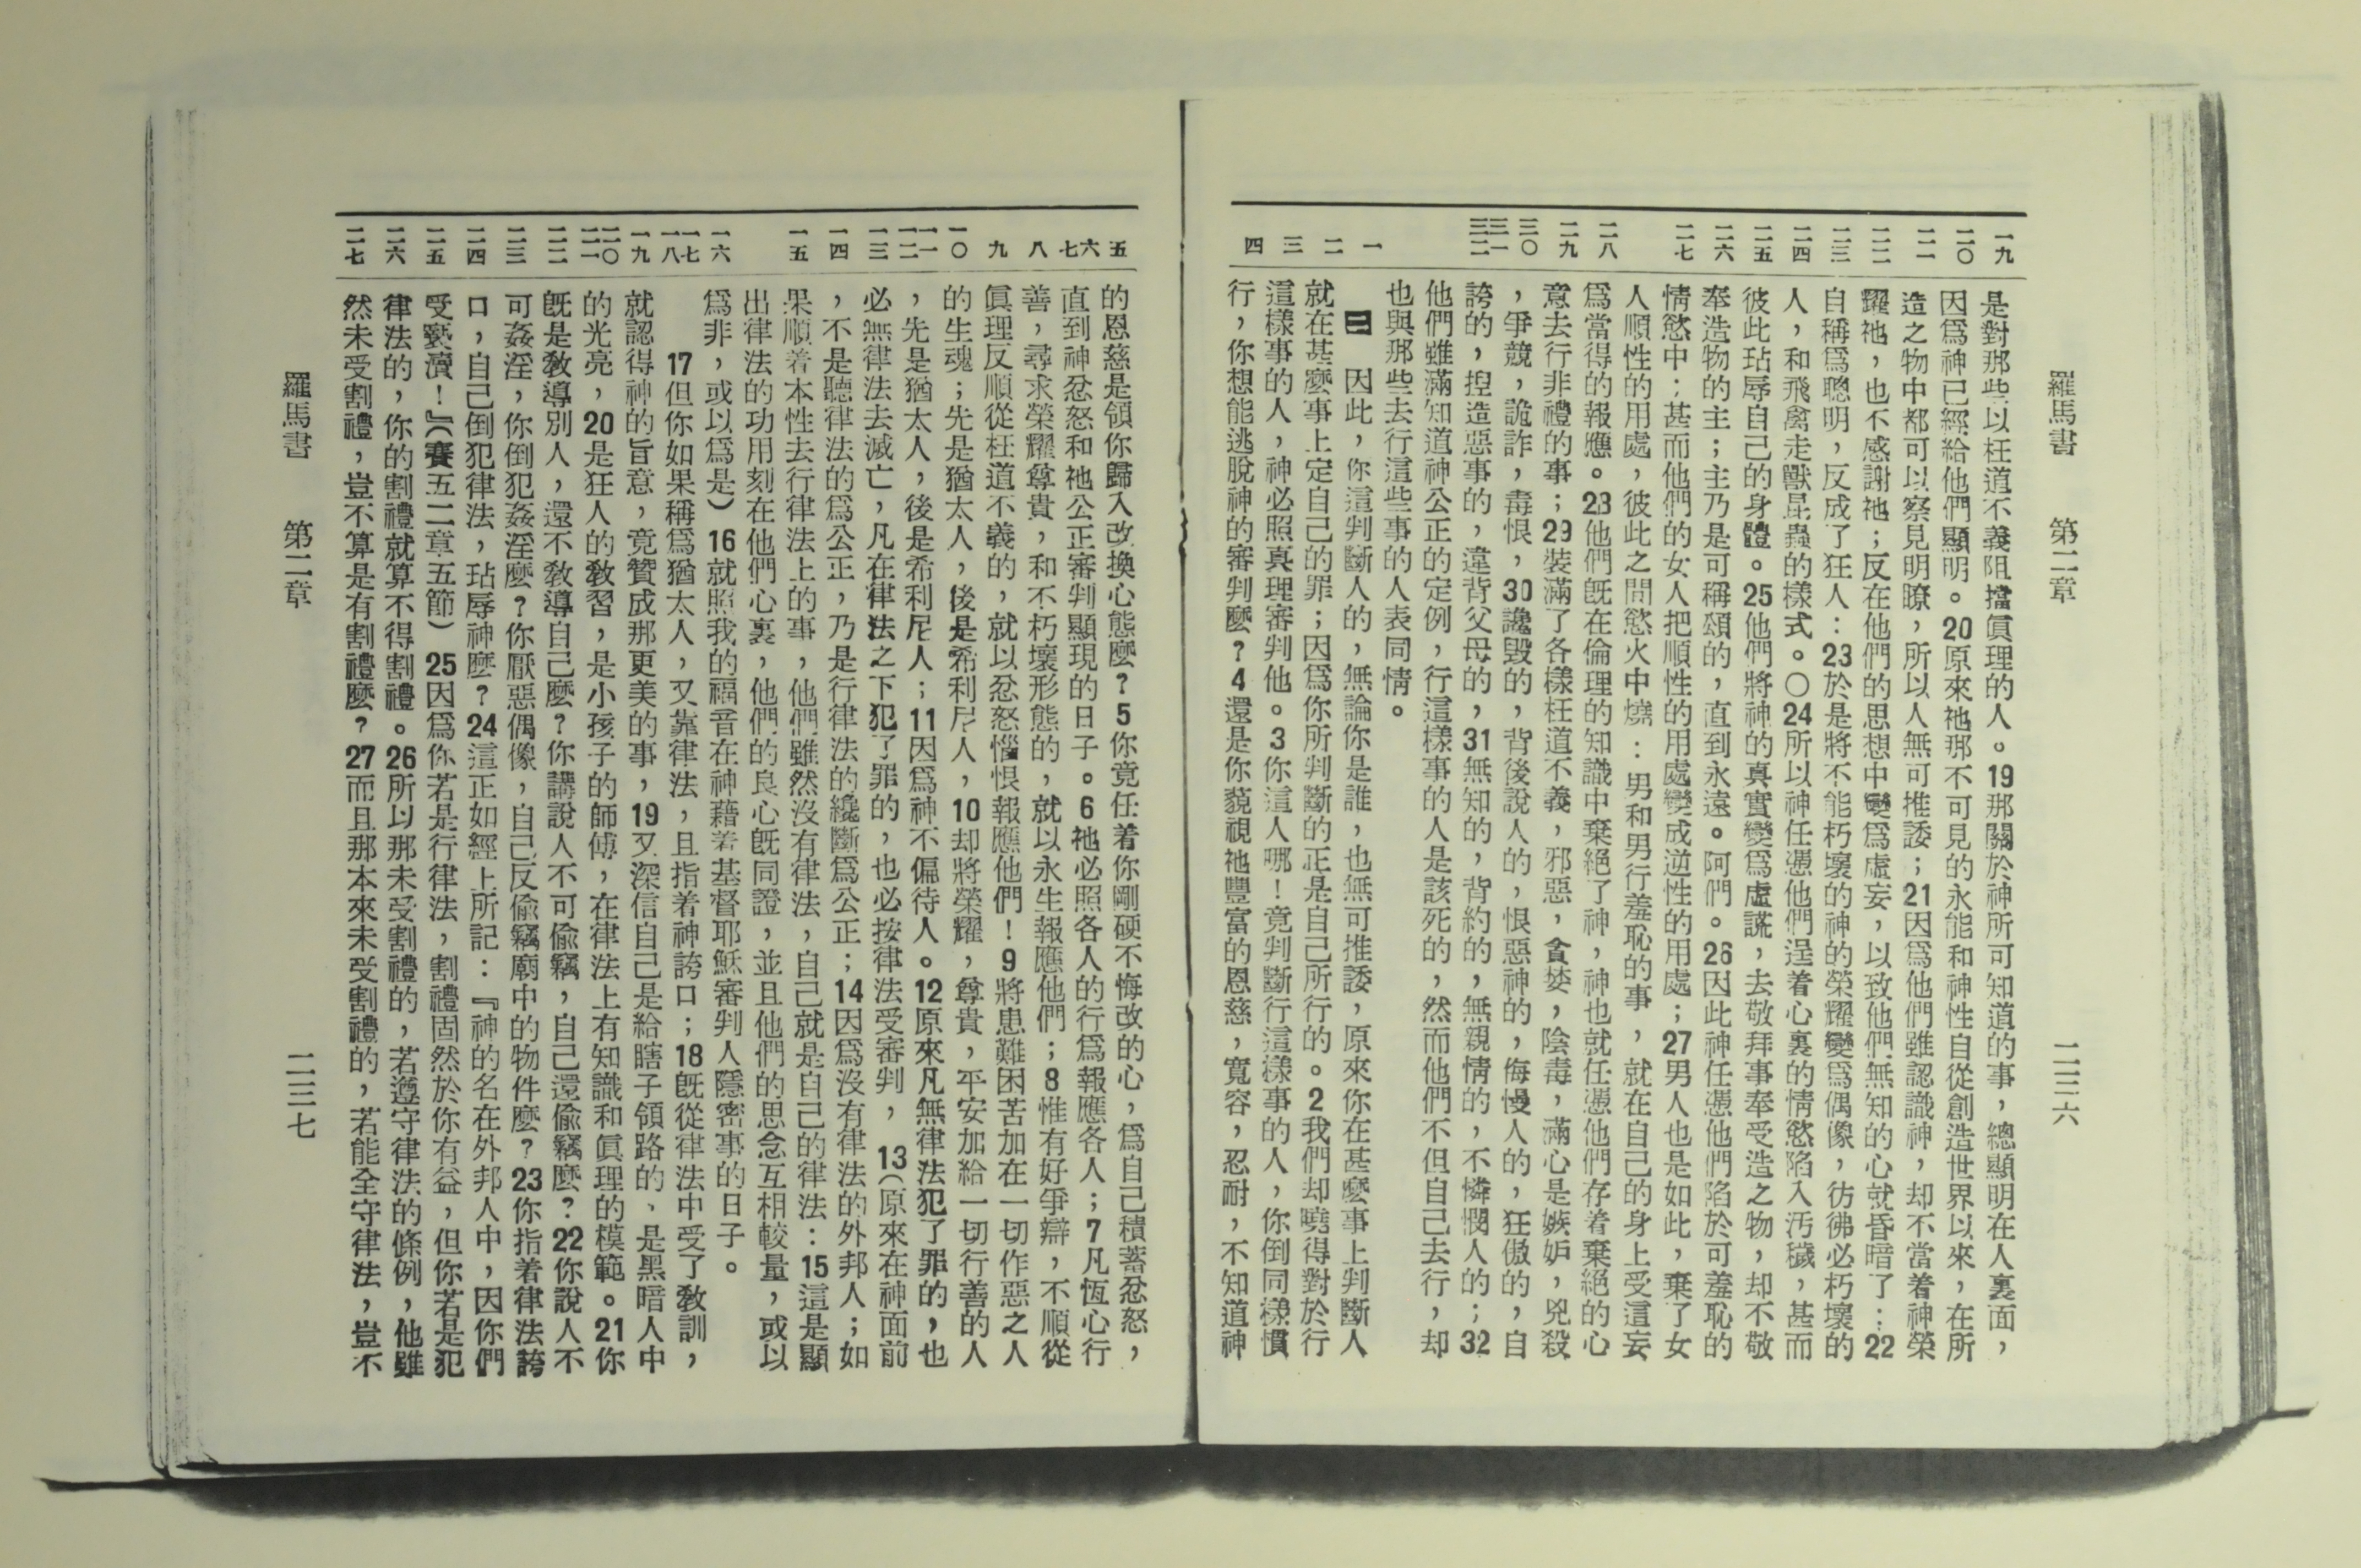 羅馬書　第二章　二三六
一九
二〇
二一
二二
二三
二四
二五
二六
二七
二八
二九
三〇
三一
三二
一
二
三
四
是對那些以枉道不義阻擋眞理的人。19那關於神所可知道的事，總顯明在人裏面，
因爲神已經給他們顯明。20原來祂那不可見的永能和神性自從創造世界以來，在所
造之物中都可以察見明瞭，所以人無可推諉；21因爲他們雖認識神，却不當着神榮
耀祂，也不感謝祂；反在他們的思想中變爲虛妄，以致他們無知的心就昏暗了：22
自稱爲聰明，反成了狂人：23於是將不能朽壞的神的榮耀變爲偶像，彷彿必朽壞的
人，和飛禽走獸昆蟲的樣式。〇24所以神任憑他們逞着心裏的情慾陷入汚穢，甚而
彼此玷辱自己的身體。25他們將神的真實變爲虛謊，去敬拜事奉受造之物，却不敬
奉造物的主；主乃是可稱頌的，直到永遠。阿們。26因此神任憑他們陷於可羞恥的
情慾中：甚而他們的女人把順性的用處變成逆性的用處；27男人也是如此，棄了女
人順性的用處，彼此之間慾火中燒：男和男行羞恥的事，就在自己的身上受這妄
爲當得的報應。28他們旣在倫理的知識中棄絕了神，神也就任憑他們存着棄絕的心
意去行非禮的事；29裝滿了各樣枉道不義，邪惡，貪婪，陰毒，滿心是嫉妒，兇殺
，爭競，詭詐，毒恨，30讒毀的，背後說人的，恨惡神的，侮慢人的，狂傲的，自
誇的，揑造惡事的，違背父母的，31無知的，背約的，無親情的，不憐憫人的；32
他們雖滿知道神公正的定例，行這樣事的人是該死的，然而他們不但自己去行，却
也與那些去行這些事的人表同情。
二　因此，你這判斷人的，無論你是誰，也無可推諉，原來你在甚麼事上判斷人
就在甚麼事上定自己的罪；因爲你所判斷的正是自己所行的。2我們却曉得對於行
這樣事的人，神必照真理審判他。3你這人哪！竟判斷行這樣事的人，你倒同樣慣
行，你想能逃脫神的審判麼？4還是你藐視祂豐富的恩慈，寬容，忍耐，不知道神
五
六
七
八
九
一〇
一一
一二
一三
一四
一五
一六
一七
一八
一九
二〇
二一
二二
二三
二四
二五
二六
二七
的恩慈是領你歸入改換心態麼？5你竟任着你剛硬不悔改的心，爲自己積蓄忿怒，
直到神忿怒和祂公正審判顯現的日子。6祂必照各人的行爲報應各人；7凡恆心行
善，尋求榮耀尊貴，和不朽壞形態的，就以永生報應他們；8惟有好爭辯，不順從
眞理反順從枉道不義的，就以忿怒惱恨報應他們！9將患難困苦加在一切作惡之人
的生魂；先是猶太人，後是希利尼人，10却將榮耀，尊貴，平安加給一切行善的人
，先是猶太人，後是希利尼人；11因爲神不偏待人。12原來凡無律法犯了罪的，也
必無律法去滅亡，凡在律法之下犯了罪的，也必按律法受審判，13（原來在神面前
，不是聽律法的爲公正，乃是行律法的纔斷爲公正；14因爲沒有律法的外邦人；如
果順着本性去行律法上的事，他們雖然沒有律法，自己就是自己的律法：15這是顯
出律法的功用刻在他們心裏，他們的良心旣同證，並且他們的思念互相較量，或以
爲非，或以爲是）16就照我的福音在神藉着基督耶穌審判人隱密事的日子。
17但你如果稱爲猶太人，又靠律法，且指着神誇口；18旣從律法中受了敎訓，
就認得神的旨意，竟贊成那更美的事，19又深信自己是給瞎子領路的、是黑暗人中
的光亮，20是狂人的敎習，是小孩子的師傅，在律法上有知識和眞理的模範。21你
旣是敎導別人，還不敎導自己麼？你講說人不可偷竊，自己還偷竊麼？22你說人不
可姦淫，你倒犯姦淫麼？你厭惡偶像，自己反偷竊廟中的物件麼？23你指着律法誇
口，自己倒犯律法，玷辱神麼？24這正如經上所記：『神的名在外邦人中，因你們
受褻瀆！』（賽五二章五節）25因爲你若是行律法，割禮固然於你有益，但你若是犯
律法的，你的割禮就算不得割禮。26所以那未受割禮的，若遵守律法的條例，他雖
然未受割禮，豈不算是有割禮麼？27而且那本來未受割禮的，若能全守律法，豈不
羅馬書　第二章　二三七